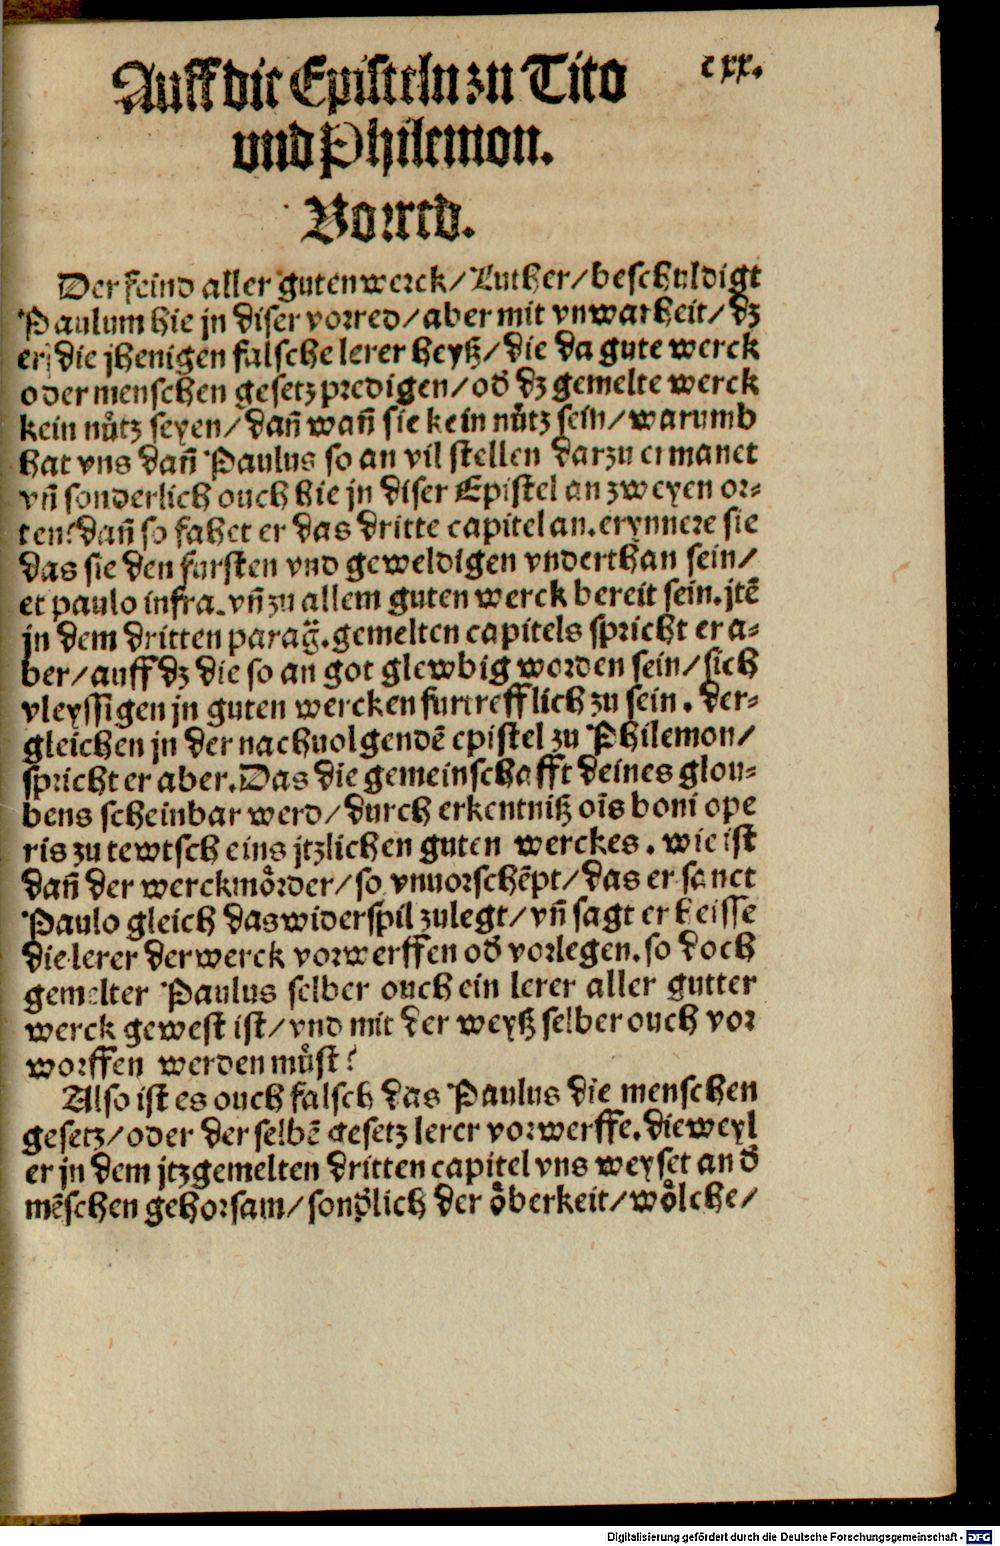 Auff die Episteln zu Tito
cxx.
vnd Philemon.
Vorred.
Der feind aller guten werck/ Luther/ beschuldigt
Paulum hie jn diser vorred/ aber mit vnwarheit/ dz
er die jhenigen falsche lerer heyß/ die da gute werck
oder menschen gesetz predigen/ od̕ dz gemelte werck
kein nuͤtz seyen/ dañ wañ sie kein nuͤtz sein/ warumb
hat vns dañ Paulus so an vil stellen darzu ermanet
vñ sonderlich ouch hie jn diser Epistel an zweyen or⸗
ten? dañ so fahet er das dritte capitel an. erynnere sie
das sie den fursten vnd geweldigen vnderthan sein/
et paulo infra. vñ zu allem guten werck bereit sein. jtē
jn dem dritten parag̃. gemelten capitels spricht er a⸗
ber/ auff dz die so an got glewbig worden sein/ sich
vleyssigen jn guten wercken furtrefflich zu sein. der⸗
gleichen jn der nachuolgendē epistel zu Philemon/
spricht er aber. Das die gemeinschafft deines glou⸗
bens scheinbar werd/ durch erkentniß oīs boni ope
ris zu tewtsch eins jtzlichen guten werckes. wie ist
dañ der werckmoͤrder/ so vnuorschēpt/ das er sanct
Paulo gleich das widerspil zulegt/ vñ sagt er heisse
die lerer der werck vorwerffen od̕ vorlegen. so doch
gemelter Paulus selber ouch ein lerer aller gutter
werck gewest ist/ vnd mit der weyß selber ouch vor
worffen werden muͤst?
Also ist es ouch falsch das Paulus die menschen
gesetz/ oder der selbē gesetz lerer vorwerffe. dieweyl
er jn dem jtzgemelten dritten capitel vns weyset an d̕
mēschen gehorsam/ sond̕lich der oͤberkeit/ woͤlche/
Digitalisierung gefördert durch die Deutsche Forschungsgemeinschaft - DFG